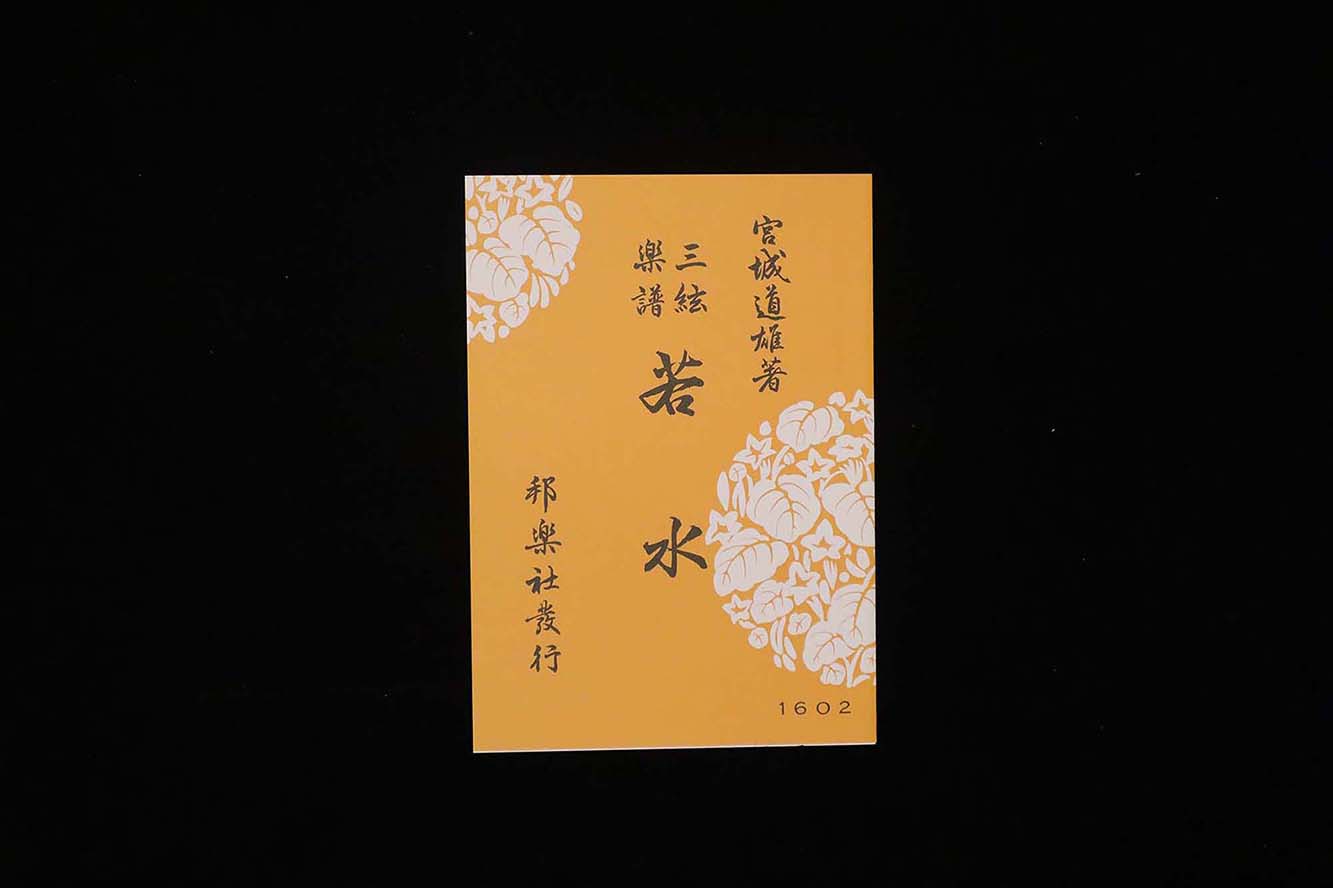 宮城道雄著
三絃
楽譜
若水
邦楽社發行
1602